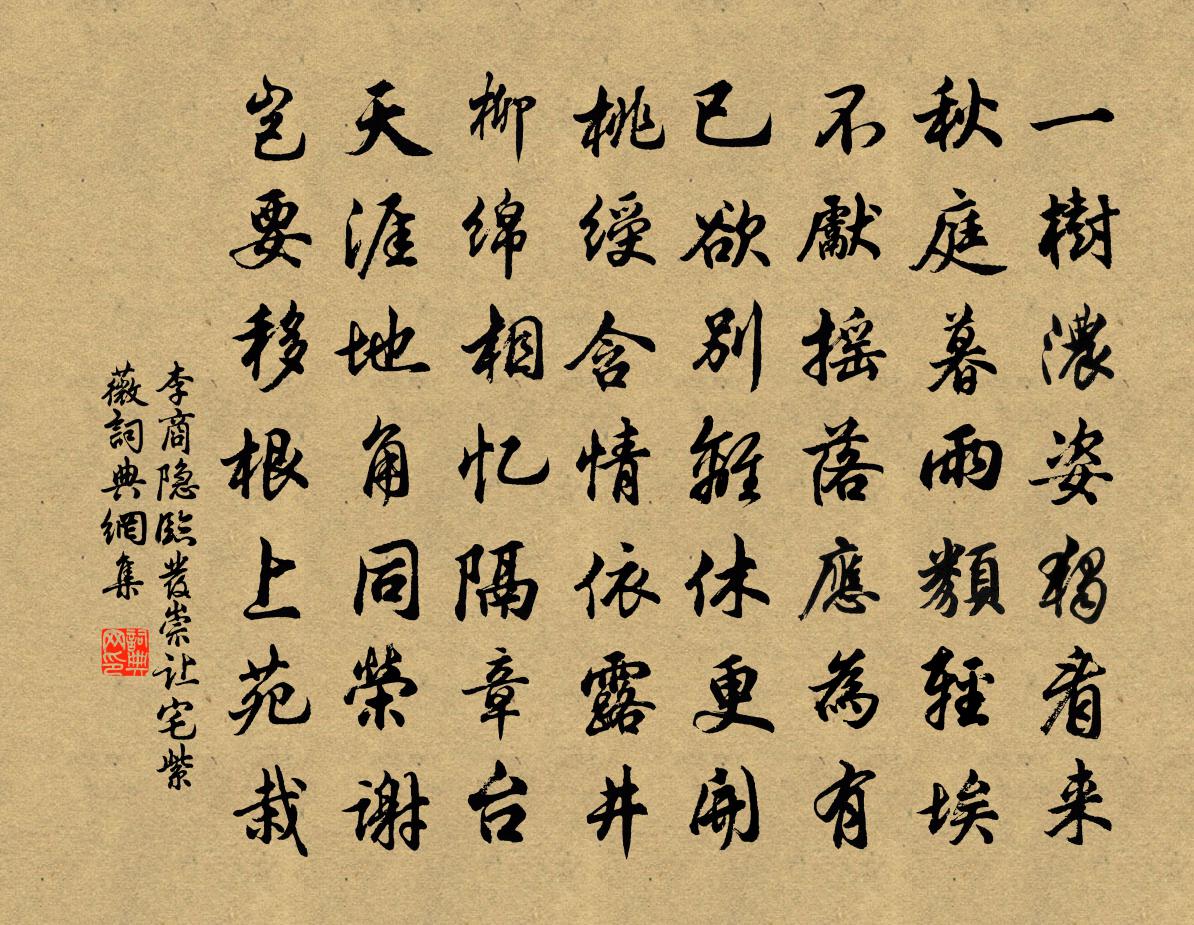 一樹濃姿獨看来
秋庭暮雨類輕埃
不獻摇落應為有
已欲别離休更開
桃綬含情依露井
柳綿相忆隔章台
天涯地角同榮谢
岂要移根上苑栽
李商隐臨發崇让宅紫
薇詞典網集
詞典网印